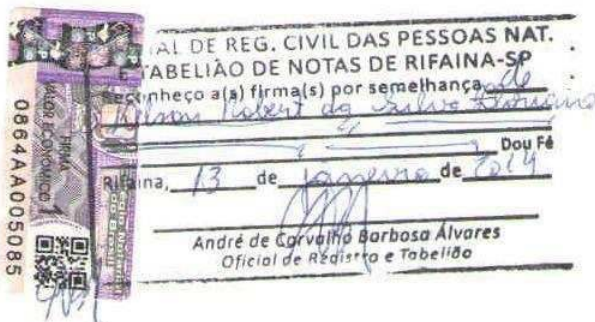 IAL DE REG. CIVIL DAS PESSOAS NAT.
TABELIÃO DE NOTAS DE RIFAINA-SP
Reconheço a(s) firma(s) por semelhança de
Robert da Silva
Dou Fé
Rifaina, 13 de janeiro de 2014
André de Carvalho Barbosa Álvares
Oficial de Registro e Tabelião
0864AA005085
FIRMA
VALOR ECONÔMICO 1